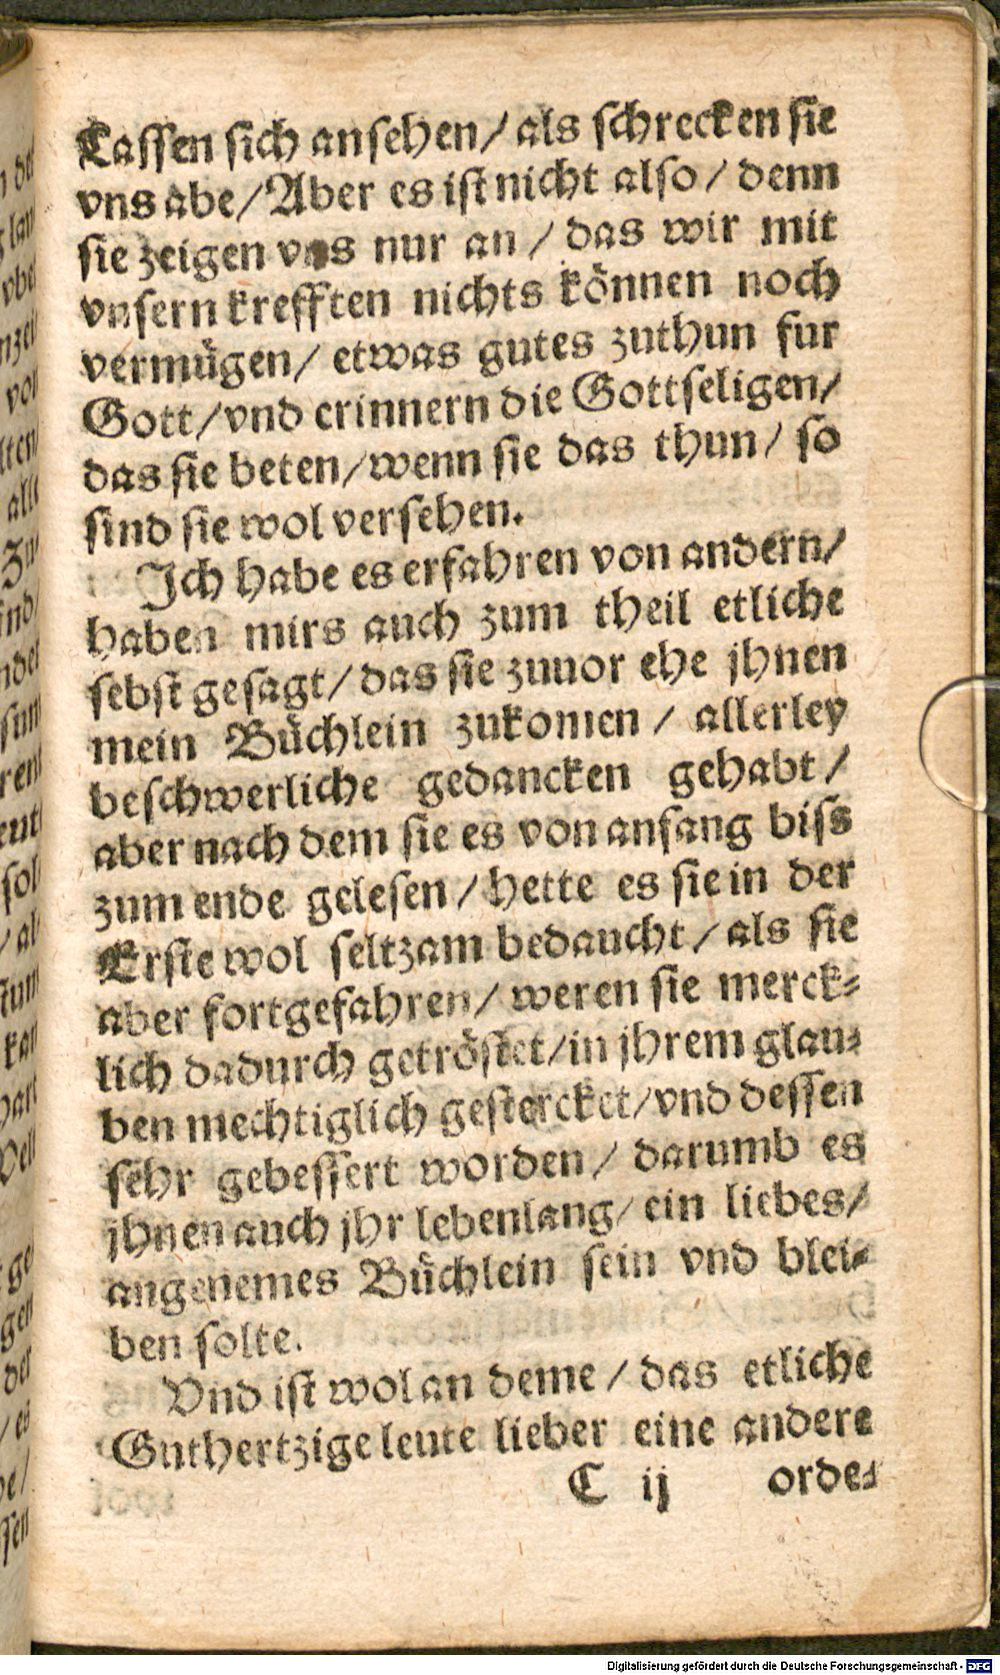 Lassen sich ansehen/ als schrecken sie
vns abe/ Aber es ist nicht also/ denn
sie zeigen vns nur an / das wir mit
vnsern krefften nichts können noch
vermügen/ etwas gutes zuthun fur
Gott/ vnd erinnern die Gottseligen/
das sie beten/ wenn sie das thun/ so
sind sie wol versehen.
Ich habe es erfahren von andern/
haben mirs auch zum theil etliche
sebst gesagt/ das sie zuuor ehe jhnen
mein Büchlein zukomen / allerley
beschwerliche gedancken gehabt/
aber nach dem sie es von anfang biss
zum ende gelesen / hette es sie in der
Erste wol seltzam bedaucht/ als sie
aber fortgefahren/ weren sie merck-
lich dadurch getröstet/ in jhrem glau-
ben mechtiglich gestercket/ vnd dessen
sehr gebessert worden/ darumb es
jhnen auch jhr lebenlang/ ein liebes/
angenemes Büchlein sein vnd blei-
ben solte.
Vnd ist wol an deme / das etliche
Guthertzige leute lieber eine andere
C ij orde-
Digitalisierung gefördert durch die Deutsche Forschungsgemeinschaft - DFG